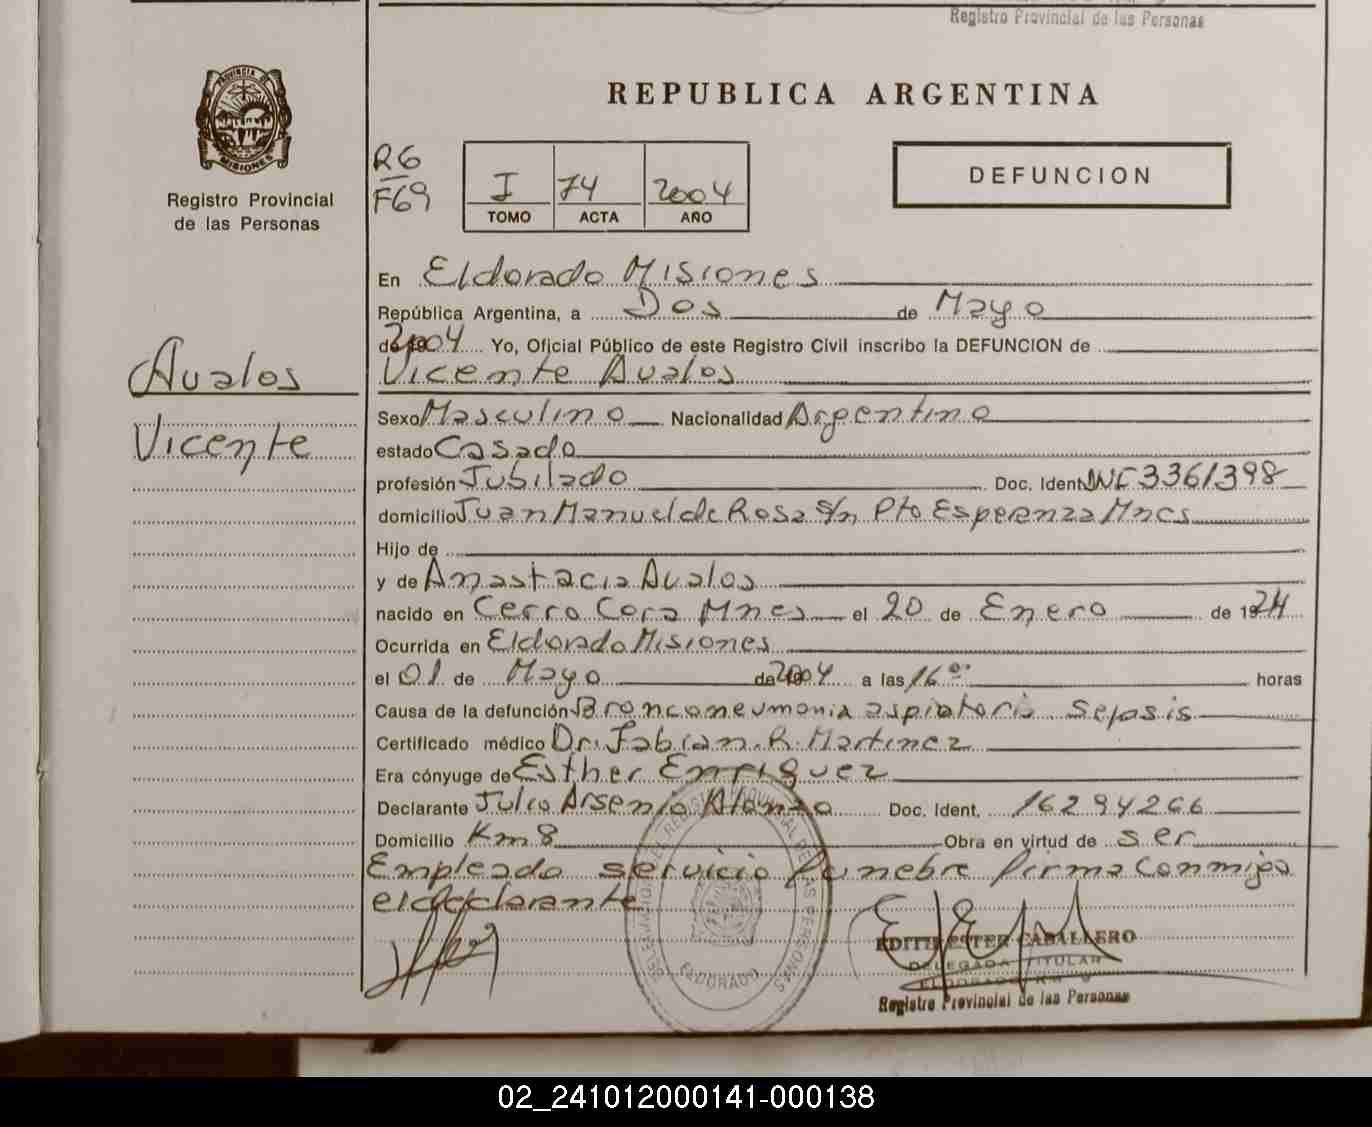 Registro Provincial de las Personas
PROVINCIA DE
MISIONES
Registro Provincial
de las Personas
REPUBLICA ARGENTINA
R6
F69
I 74 2004
TOMO ACTA AÑO
DEFUNCION
Avalos
Vicente
En Eldorado Misiones
República Argentina, a Dos de Mayo
de 2004 Yo, Oficial Público de este Registro Civil inscribo la DEFUNCION de
Vicente Avalos
Sexo Masculino Nacionalidad Argentino
estado Casado
profesión Jubilado Doc. Ident. DNI 3361398
domicilio Juan Manuel de Rosa s/n Pto Esperanza Mnes
Hijo de
y de Anastacia Avalos
nacido en Cerro Cora Mnes el 20 de Enero de 1924
Ocurrida en Eldorado Misiones
el 01 de Mayo de 2004 a las 16 00 horas
Causa de la defunción Bronconeumonia aspiatoria sepsis
Certificado médico Dr. Fabian. R. Martinez
Era cónyuge de Esther Enriquez
Declarante Julio Arsenio Alonzo Doc. Ident. 16294266
Domicilio Km 8 Obra en virtud de ser
Empleado servicio funebre firma conmigo
el declarante
ELDORADO
EDITH ESTER CABALLERO
DELEGADA TITULAR
ELDORADO KM 9
Registro Provincial de las Personas
02_241012000141-000138